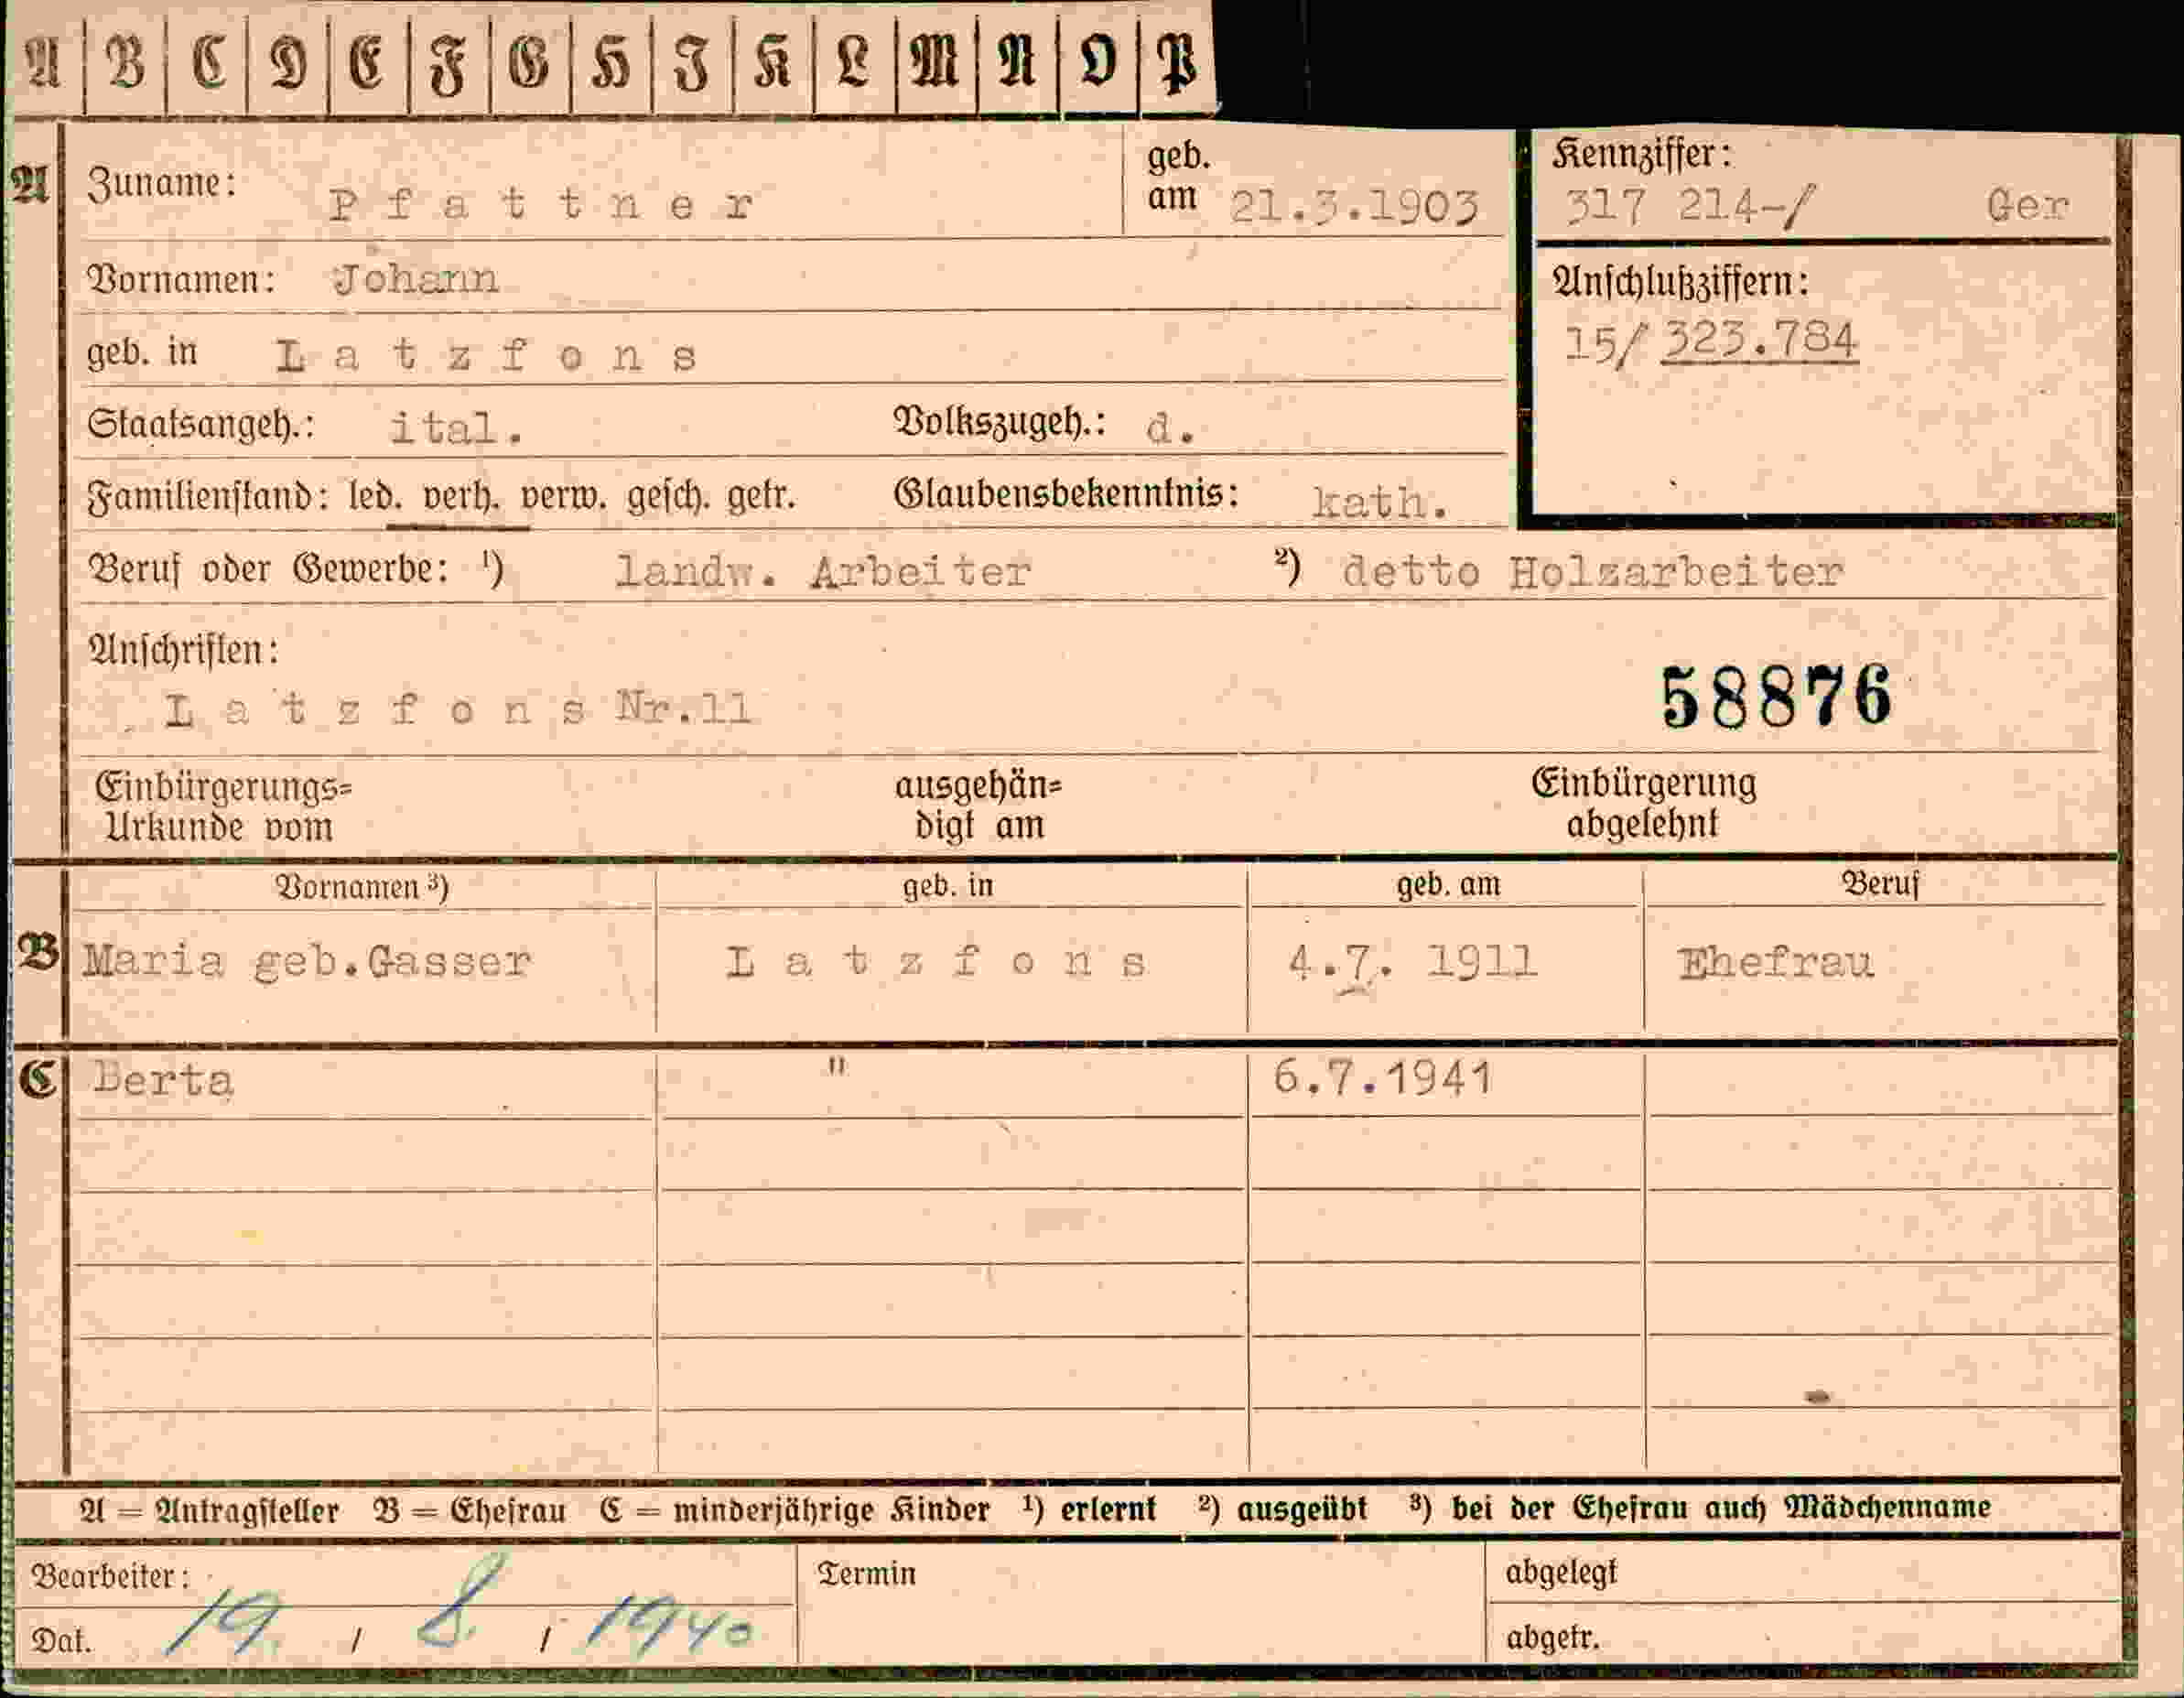 A B C D E F G H I K L M N O P
A Zuname: Pfattner geb. am 21.3.1903 Kennziffer: 317 214-/ Ger
Vornamen: Johann Anschlußziffern:
geb. in Latzfons 15/ 323.784
Staatsangeh.: ital. Volkszugeh.: d.
Familienstand: led. verh. verw. gesch. getr. Glaubensbekenntnis: kath.
Beruf oder Gewerbe: ¹) landw. Arbeiter ²) detto Holzarbeiter
Anschriften:
Latzfons Nr.11 58876
Einbürgerungs= ausgehän= Einbürgerung
Urkunde vom digt am abgelehnt
Vornamen ³) geb. in geb. am Beruf
B Maria geb.Gasser Latzfons 4.7. 1911 Ehefrau
C Berta " 6.7.1941
A = Antragsteller B = Ehefrau C = minderjährige Kinder ¹) erlernt ²) ausgeübt ³) bei der Ehefrau auch Mädchenname
Bearbeiter: Termin abgelegt
Dat. 19. / 8. / 1940 abgetr.